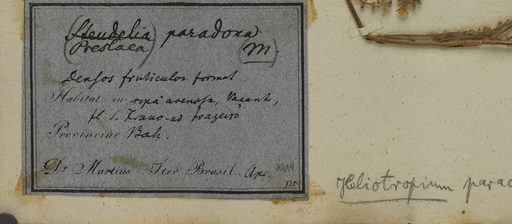 (Steudelia paradoxa
Preslaea) (M.)
Densos fruticulos format.
Habitat in ripâ arenosa, vacante,
fl. S. Franc. ad Joazeiro
Provinciae Bah.
Dr. Martius Iter Brasil. Apr.
Heliotropium parad